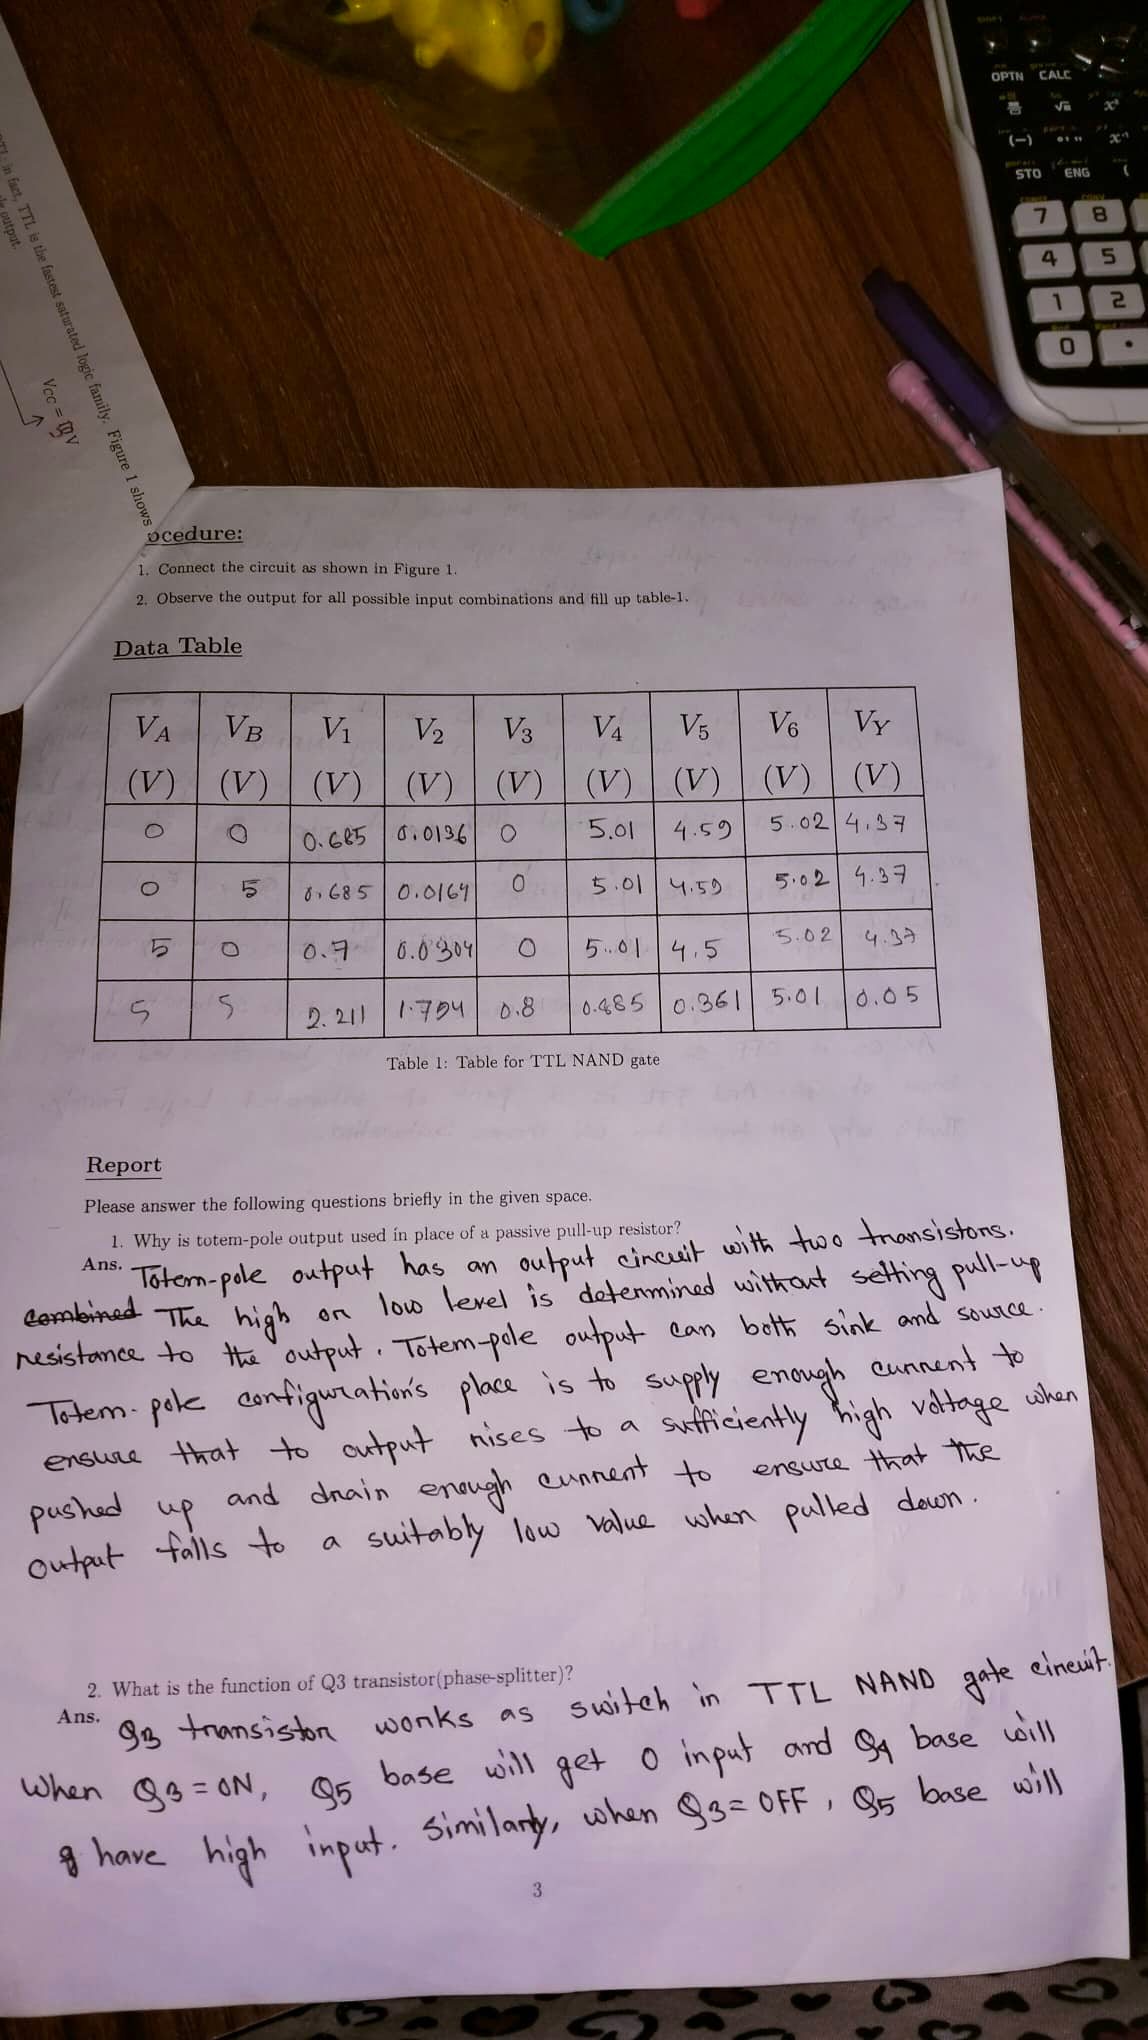 OPTN CALC
(−)
STO ENG (
7 8
4 5
1 2
0 .
TTL is the fastest saturated logic family. Figure 1 shows
output.
VCC = V
ocedure:
1. Connect the circuit as shown in Figure 1.
2. Observe the output for all possible input combinations and fill up table-1.
Data Table
VA VB V1 V2 V3 V4 V5 V6 VY
(V) (V) (V) (V) (V) (V) (V) (V) (V)
0 0 0.685 0.0136 0 5.01 4.59 5.02 4.37
0 5 0.685 0.0164 0 5.01 4.59 5.02 4.37
5 0 0.7 0.0304 0 5.01 4.5 5.02 4.37
5 5 2.211 1.794 0.8 0.885 0.361 5.01 0.05
Table 1: Table for TTL NAND gate
Report
Please answer the following questions briefly in the given space.
1. Why is totem-pole output used in place of a passive pull-up resistor?
Ans. Totem-pole output has an output circuit with two transistors.
combined The high or low level is determined without setting pull-up
resistance to the output. Totem-pole output can both sink and source.
Totem-pole configuration's place is to supply enough current to
ensure that to output rises to a sufficiently high voltage when
pushed up and drain enough current to ensure that the
output falls to a suitably low value when pulled down.
2. What is the function of Q3 transistor(phase-splitter)?
Ans. Q3 transistor works as switch in TTL NAND gate circuit.
When Q3 = ON, Q5 base will get 0 input and Q4 base will
have high input. Similarly, when Q3 = OFF, Q5 base will
3